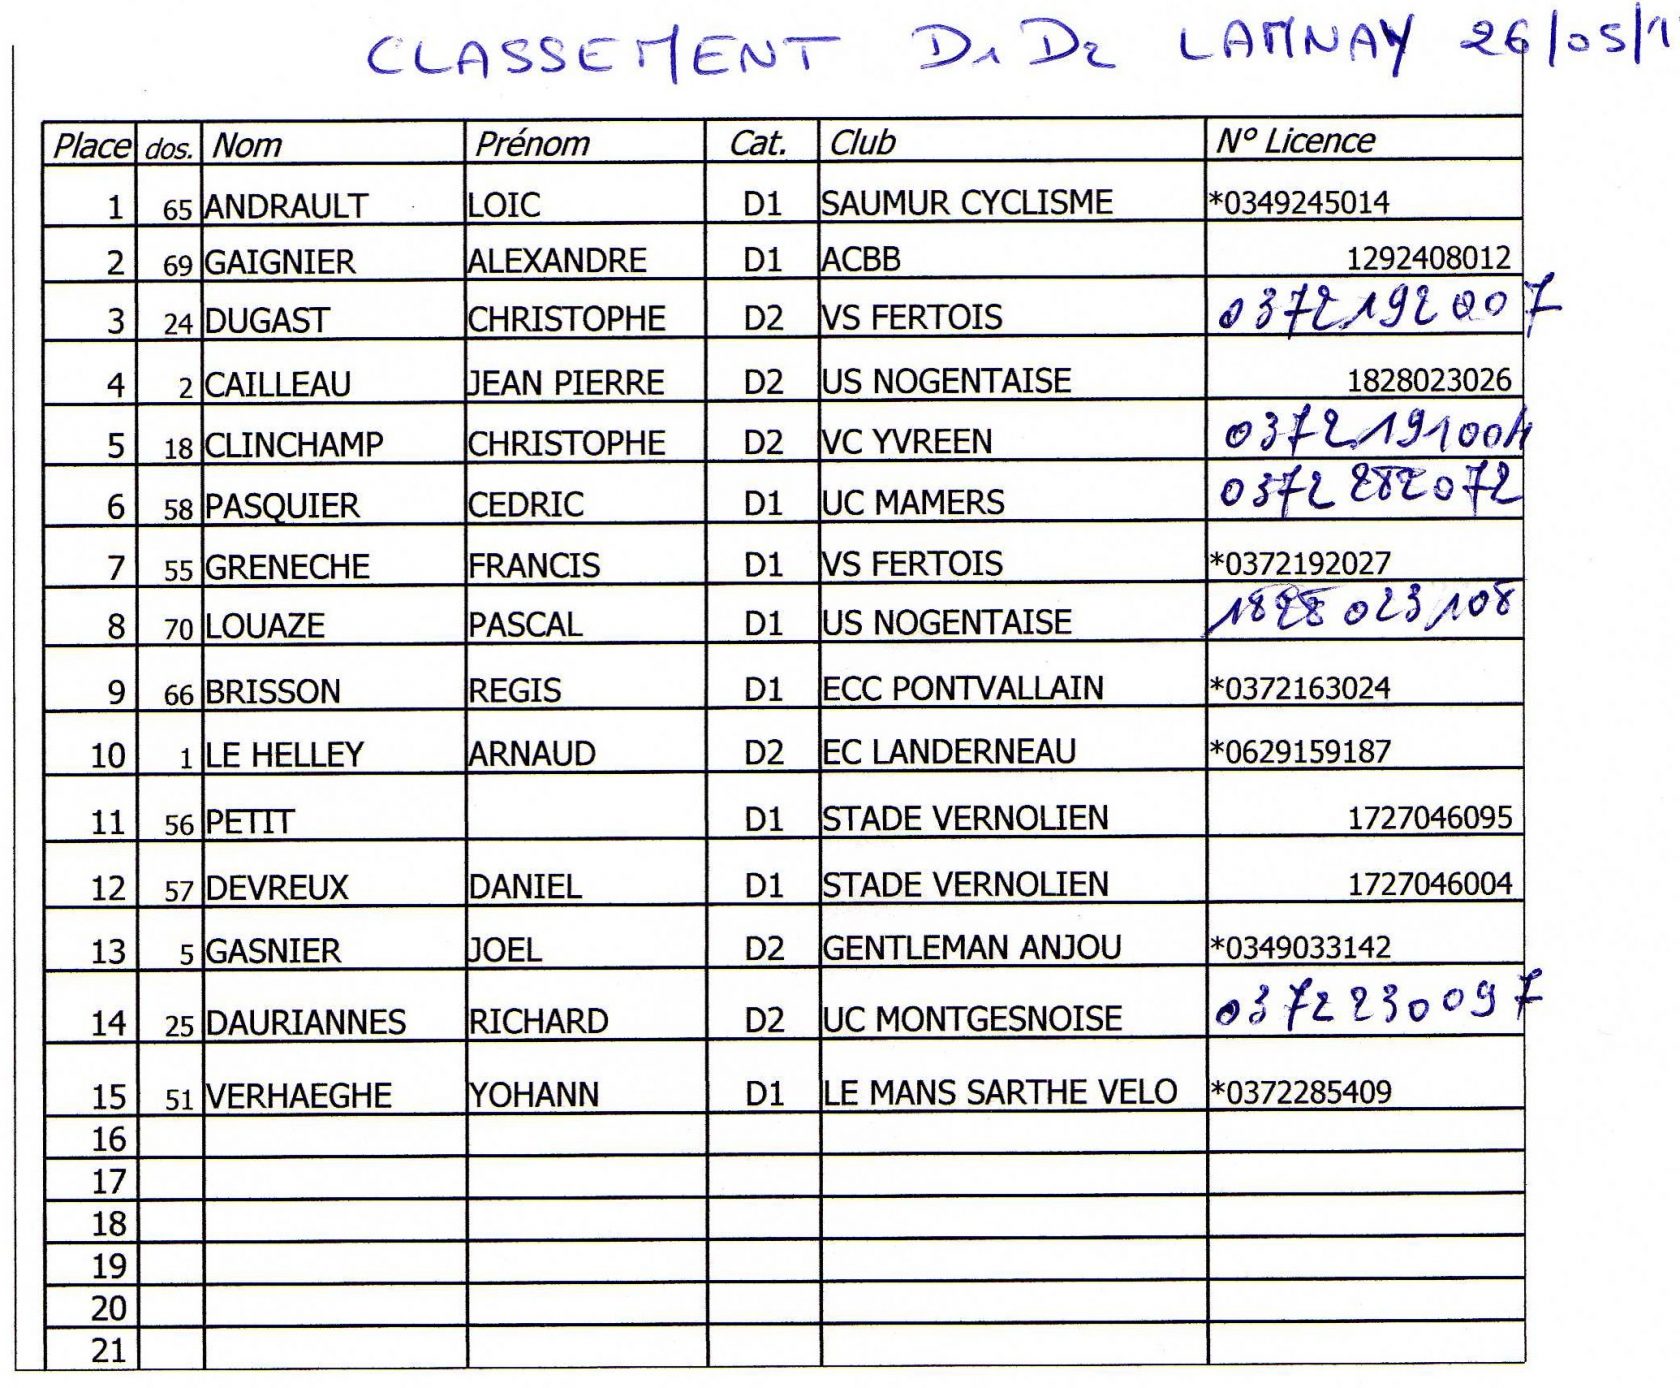 CLASSEMENT D1 D2 LAMNAY 26/05/1
Place dos. Nom Prénom Cat. Club N° Licence
1 65 ANDRAULT LOIC D1 SAUMUR CYCLISME *0349245014
2 69 GAIGNIER ALEXANDRE D1 ACBB 1292408012
3 24 DUGAST CHRISTOPHE D2 VS FERTOIS 0372192007
4 2 CAILLEAU JEAN PIERRE D2 US NOGENTAISE 1828023026
5 18 CLINCHAMP CHRISTOPHE D2 VC YVREEN
6 58 PASQUIER CEDRIC D1 UC MAMERS 0372282072
7 55 GRENECHE FRANCIS D1 VS FERTOIS *0372192027
8 70 LOUAZE PASCAL D1 US NOGENTAISE 1828023108
9 66 BRISSON REGIS D1 ECC PONTVALLAIN *0372163024
10 1 LE HELLEY ARNAUD D2 EC LANDERNEAU *0629159187
11 56 PETIT D1 STADE VERNOLIEN 1727046095
12 57 DEVREUX DANIEL D1 STADE VERNOLIEN 1727046004
13 5 GASNIER JOEL D2 GENTLEMAN ANJOU *0349033142
14 25 DAURIANNES RICHARD D2 UC MONTGESNOISE 0372230097
15 51 VERHAEGHE YOHANN D1 LE MANS SARTHE VELO *0372285409
16
17
18
19
20
21